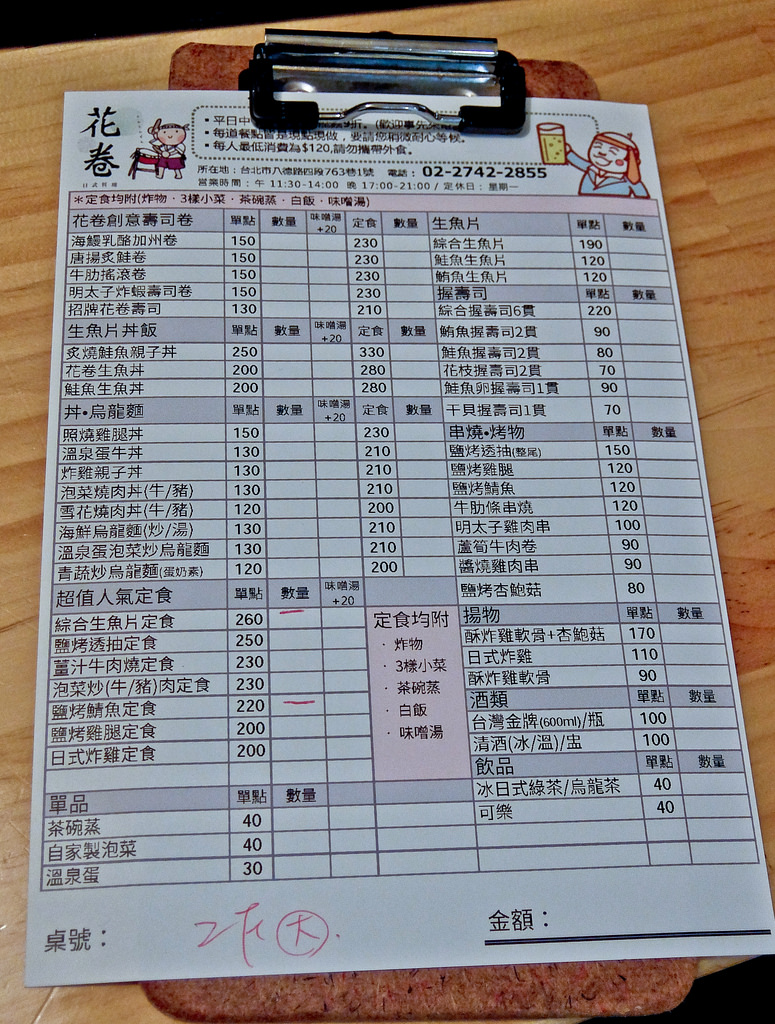 花卷
日式料理
• 平日中
9折。(歡迎事先
• 每道餐點皆是現點現做，要請您稍微耐心等候。
• 每人最低消費為$120,請勿攜帶外食。
所在地：台北市八德路四段763巷1號 電話：02-2742-2855
營業時間：午 11:30-14:00 晚 17:00-21:00 / 定休日：星期一
*定食均附(炸物‧3樣小菜‧茶碗蒸‧白飯‧味噌湯)
花卷創意壽司卷 單點 數量 味噌湯+20 定食 數量
海鰻乳酪加州卷 150 230
唐揚炙鮭卷 150 230
牛肋搖滾卷 150 230
明太子炸蝦壽司卷 150 230
招牌花卷壽司 130 210
生魚片丼飯 單點 數量 味噌湯+20 定食 數量
炙燒鮭魚親子丼 250 330
花卷生魚丼 200 280
鮭魚生魚丼 200 280
丼•烏龍麵 單點 數量 味噌湯+20 定食 數量
照燒雞腿丼 150 230
溫泉蛋牛丼 130 210
炸雞親子丼 130 210
泡菜燒肉丼(牛/豬) 130 210
雪花燒肉丼(牛/豬) 120 200
海鮮烏龍麵(炒/湯) 130 210
溫泉蛋泡菜炒烏龍麵 130 210
青蔬炒烏龍麵(蛋奶素) 120 200
超值人氣定食 單點 數量 味噌湯+20
綜合生魚片定食 260
鹽烤透抽定食 250
薑汁牛肉燒定食 230
泡菜炒(牛/豬)肉定食 230
鹽烤鯖魚定食 220
鹽烤雞腿定食 200
日式炸雞定食 200
定食均附
‧炸物
‧3樣小菜
‧茶碗蒸
‧白飯
‧味噌湯
單品 單點 數量
茶碗蒸 40
自家製泡菜 40
溫泉蛋 30
生魚片 單點 數量
綜合生魚片 190
鮭魚生魚片 120
鮪魚生魚片 120
握壽司 單點 數量
綜合握壽司6貫 220
鮪魚握壽司2貫 90
鮭魚握壽司2貫 80
花枝握壽司2貫 70
鮭魚卵握壽司1貫 90
干貝握壽司1貫 70
串燒•烤物 單點 數量
鹽烤透抽(整尾) 150
鹽烤雞腿 120
鹽烤鯖魚 120
牛肋條串燒 120
明太子雞肉串 100
蘆筍牛肉卷 90
醬燒雞肉串 90
鹽烤杏鮑菇 80
揚物 單點 數量
酥炸雞軟骨+杏鮑菇 170
日式炸雞 110
酥炸雞軟骨 90
酒類 單點 數量
台灣金牌(600ml)/瓶 100
清酒(冰/溫)/盅 100
飲品 單點 數量
冰日式綠茶/烏龍茶 40
可樂 40
桌號：
大
金額：